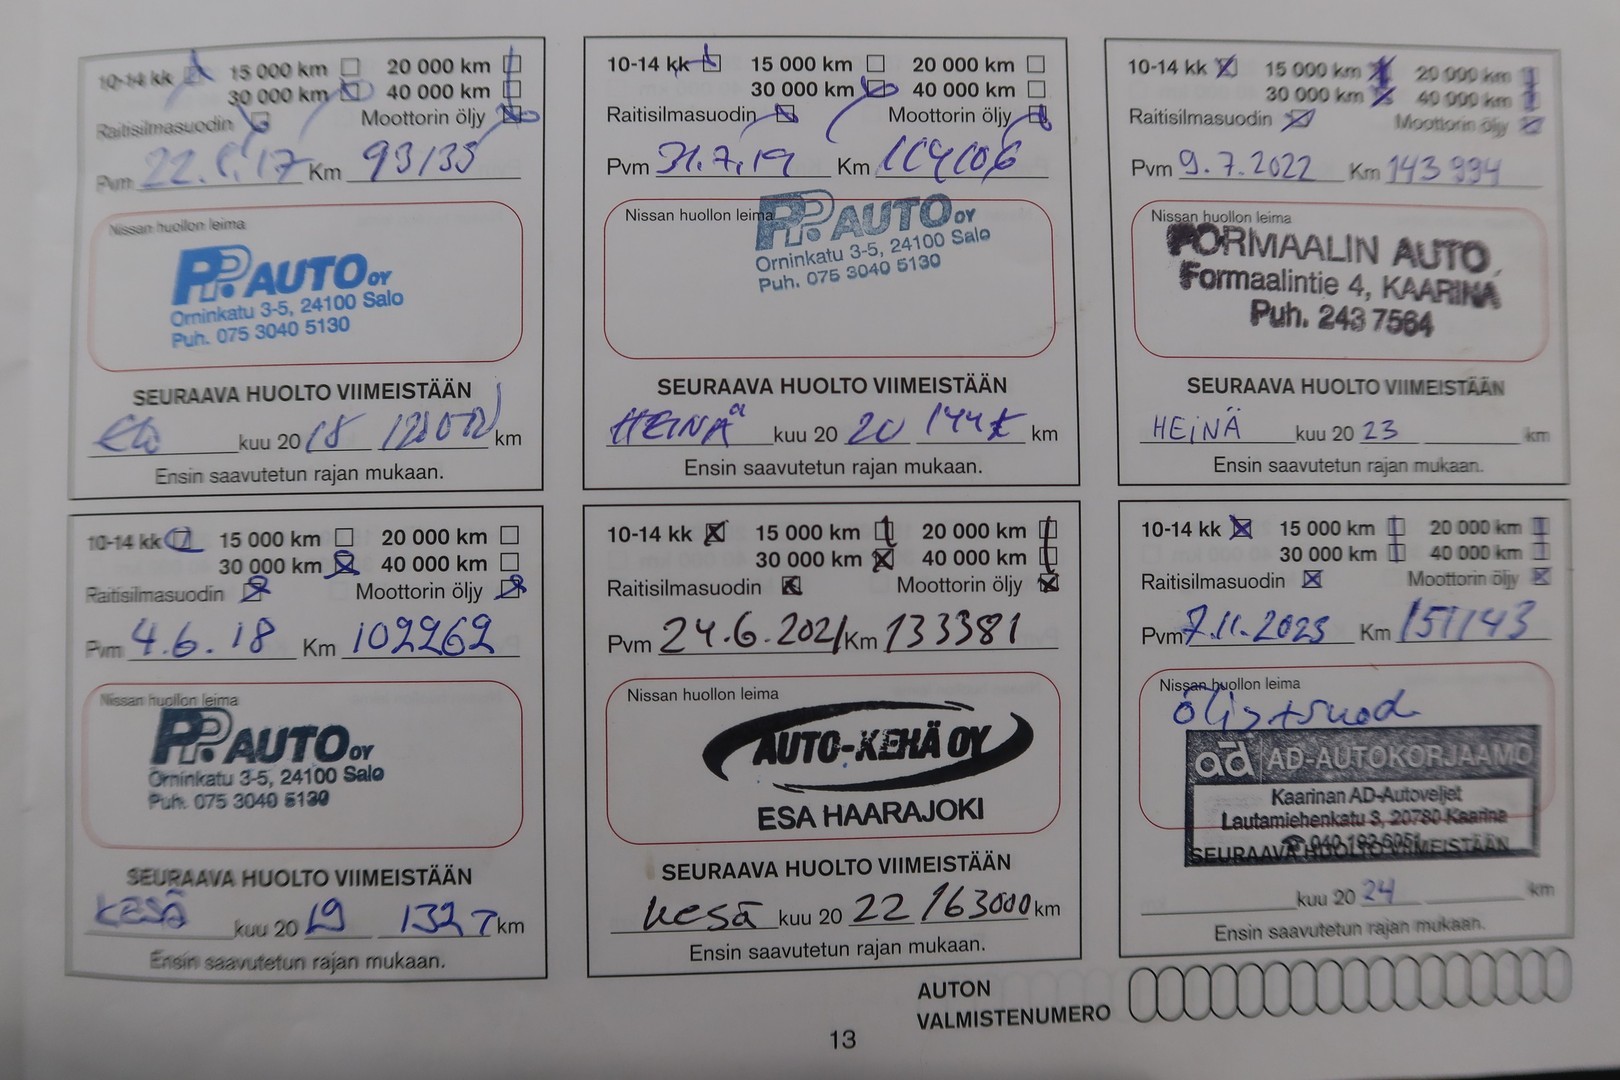 10-14 kk 15 000 km 20 000 km
30 000 km 40 000 km
Raitisilmasuodin Moottorin öljy
Pvm 22. 17 Km 93135
Nissan huollon leima
PP. AUTO OY
Orninkatu 3-5, 24100 Salo
Puh. 075 3040 5130
SEURAAVA HUOLTO VIIMEISTÄÄN
kuu 20 18 km
Ensin saavutetun rajan mukaan.
10-14 kk 15 000 km 20 000 km
30 000 km 40 000 km
Raitisilmasuodin Moottorin öljy
Pvm 4.6.18 Km 102262
Nissan huollon leima
PP. AUTO OY
Orninkatu 3-5, 24100 Salo
Puh. 075 3040 5130
SEURAAVA HUOLTO VIIMEISTÄÄN
KESÄ kuu 20 19 132 T km
Ensin saavutetun rajan mukaan.
10-14 kk 15 000 km 20 000 km
30 000 km 40 000 km
Raitisilmasuodin Moottorin öljy
Pvm 31.7.19 Km 114106
Nissan huollon leima
PP. AUTO OY
Orninkatu 3-5, 24100 Salo
Puh. 075 3040 5130
SEURAAVA HUOLTO VIIMEISTÄÄN
HEINÄ kuu 20 20 144 t km
Ensin saavutetun rajan mukaan.
10-14 kk 15 000 km 20 000 km
30 000 km 40 000 km
Raitisilmasuodin Moottorin öljy
Pvm 24.6.2021 Km 133381
Nissan huollon leima
AUTO-KEHÄ OY
ESA HAARAJOKI
SEURAAVA HUOLTO VIIMEISTÄÄN
kesä kuu 20 22 163000 km
Ensin saavutetun rajan mukaan.
10-14 kk 15 000 km 20 000 km
30 000 km 40 000 km
Raitisilmasuodin Moottorin öljy
Pvm 9.7.2022 Km 143994
Nissan huollon leima
FORMAALIN AUTO
Formaalintie 4, KAARINA
Puh. 243 7564
SEURAAVA HUOLTO VIIMEISTÄÄN
HEINÄ kuu 20 23 km
Ensin saavutetun rajan mukaan.
10-14 kk 15 000 km 20 000 km
30 000 km 40 000 km
Raitisilmasuodin Moottorin öljy
Pvm 7.11.2023 Km 151143
Nissan huollon leima
Öljy + suod
ad AD-AUTOKORJAAMO
Kaarinan AD-Autoveljet
Lautamiehenkatu 3, 20780 Kaarina
SEURAAVA HUOLTO VIIMEISTÄÄN
kuu 20 24 km
Ensin saavutetun rajan mukaan.
AUTON
VALMISTENUMERO
13